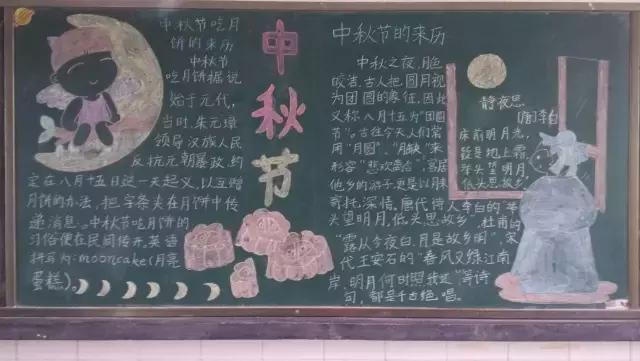 中秋节吃月
饼的来历
中秋节
吃月饼据说
始于元代,
当时,朱元璋
领导汉族人民
反抗元朝暴政,约
定在八月十五日这一天起义,以互赠
月饼的办法,把字条夹在月饼中传
递消息。中秋节吃月饼的
习俗便在民间传开,英语
拼写为:mooncake(月亮
蛋糕)。
中秋节
中秋节的来历
中秋之夜,月色
皎洁,古人把圆月视
为团圆的象征,因此
又称八月十五为“团圆
节”。古往今天人们常
用“月圆”、“月缺”来
形容“悲欢离合”,客居
他乡的游子,更是以月来
寄托深情。唐代诗人李白的“举
头望明月,低头思故乡”,杜甫的
“露从今夜白,月是故乡明”,宋
代王安石的“春风又绿江南
岸,明月何时照我还”等诗
句,都是千古绝唱。
静夜思
[唐]李白
床前明月光,
疑是地上霜,
举头望明月,
低头思故乡。